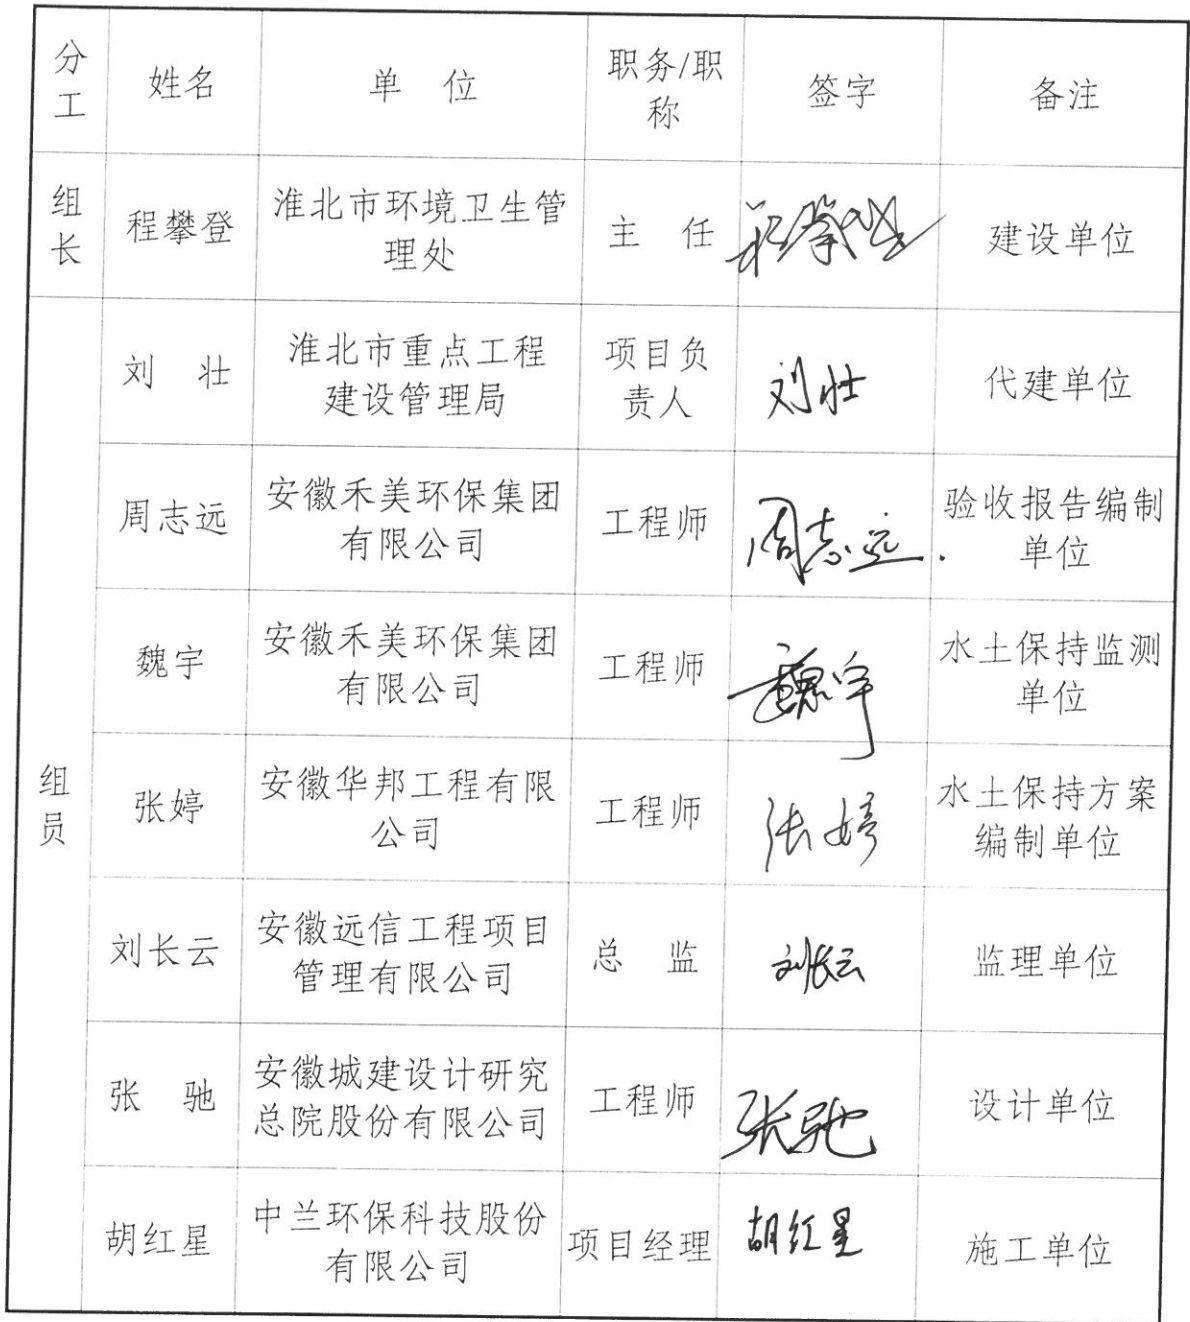 分工 姓名 单 位 职务/职称 签字 备注
组长 程攀登 淮北市环境卫生管理处 主 任 程攀登 建设单位
组员
刘 壮 淮北市重点工程建设管理局 项目负责人 刘壮 代建单位
周志远 安徽禾美环保集团有限公司 工程师 周志远 验收报告编制单位
魏宇 安徽禾美环保集团有限公司 工程师 魏宇 水土保持监测单位
张婷 安徽华邦工程有限公司 工程师 张婷 水土保持方案编制单位
刘长云 安徽远信工程项目管理有限公司 总 监 刘长云 监理单位
张 驰 安徽城建设计研究总院股份有限公司 工程师 张驰 设计单位
胡红星 中兰环保科技股份有限公司 项目经理 胡红星 施工单位